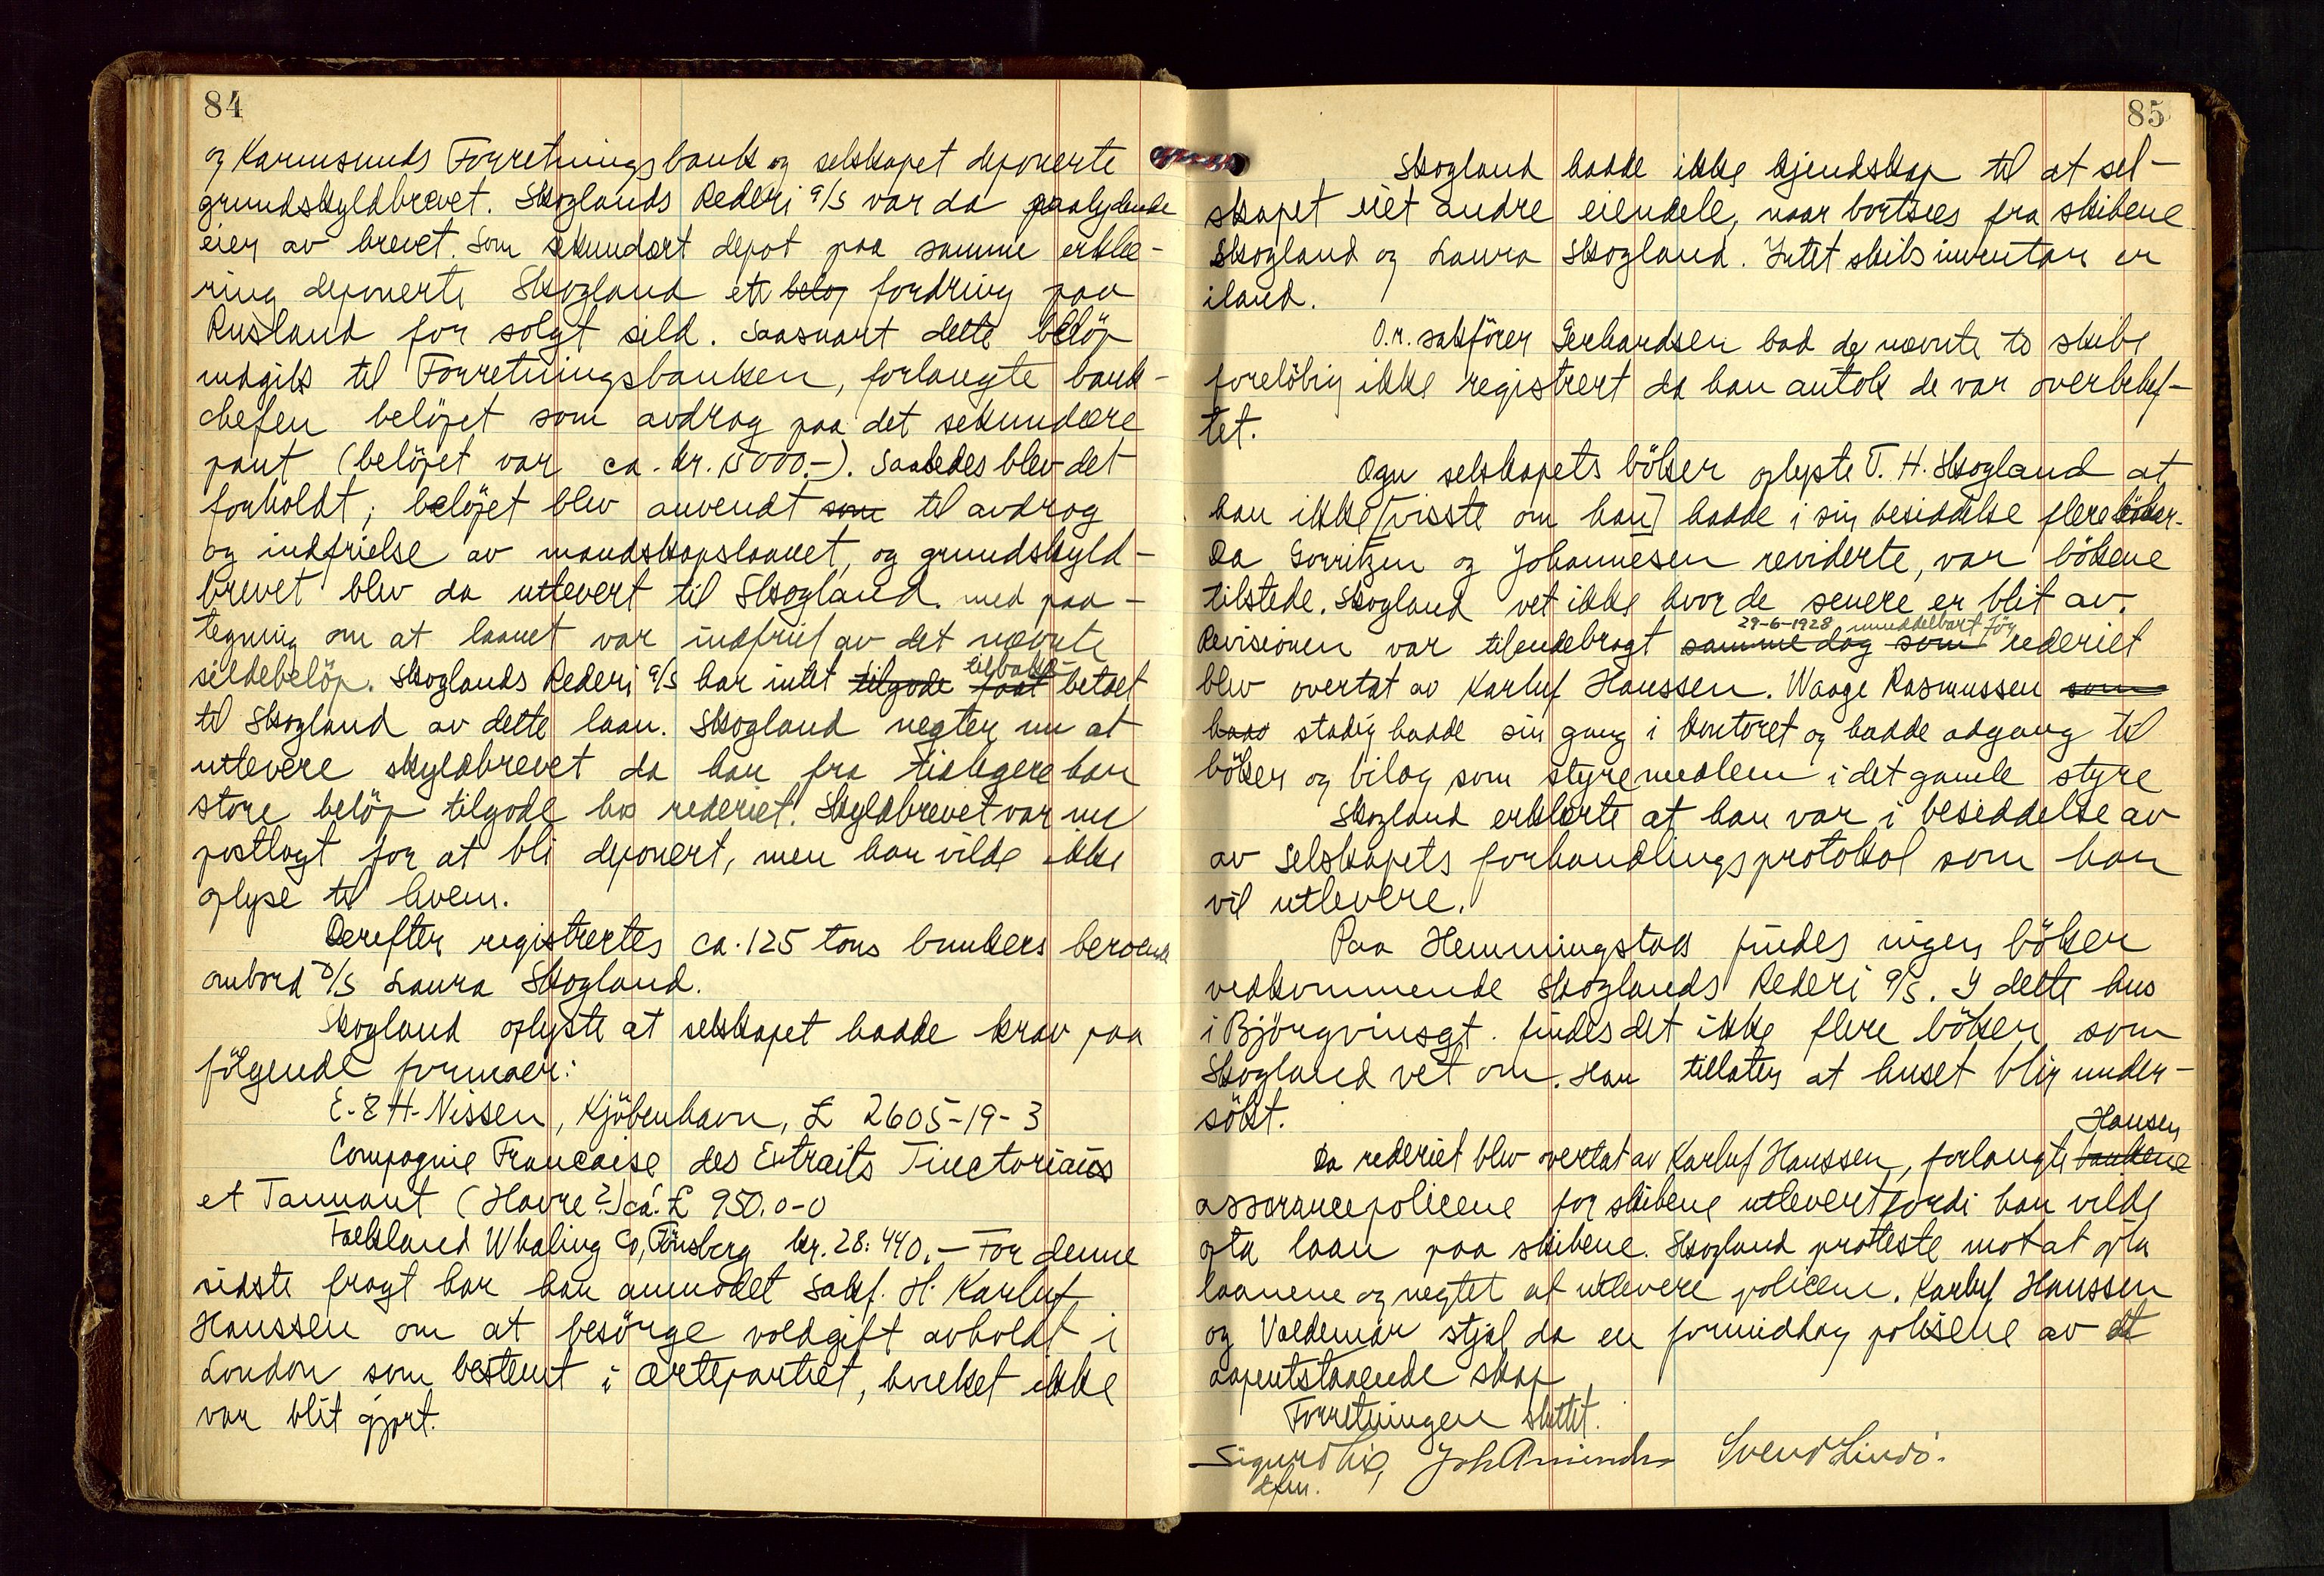 84
og Karmsunds Forretningsbank og selskapet deponerte
grundskyldbrevet. Skoglands Rederi a/s var da paalydende
eier av brevet. Som sekundært depot paa samme erklæ-
ring deponerte Skogland ett beløp fordring paa
Rusland for solgt sild. Saasnart dette beløp
indgik til Forretningsbanken, forlangte bank-
chefen beløpet som avdrag paa det sekundære
pant (beløpet var ca. kr. 15000.-). Saaledes blev det
forholdt; beløpet blev anvendt som til avdrag
og indfrielse av mandskapslaanet, og grundskyld-
brevet blev da utlevert til Skogland. med paa-
tegning om at laanet var indfriet av det nævnte
sildebeløp. Skoglands Rederi a/s har intet tilgode faat tilbake- betalt
til Skogland av dette laan. Skogland negter nu at
utlevere skyldbrevet da han fra tidligere har
store beløp tilgode hos rederiet. Skyldbrevet var nu
postlagt for at bli deponert, men han vilde ikke
oplyse til hvem.
Derefter registrertes ca. 125 tons bunkers beroende
ombord D/S Laura Skogland.
Skogland oplyste at selskapet hadde krav paa
følgende firmaer:
E. & H. Nissen, Kjöbenhavn, £ 2605-19-3
Compagnie Francaise des Extraits Tinctoriaus
et Tannant (Havre?) ca. £ 950.0-0
Falkland Whaling Co, Tönsberg kr. 28.440.- For denne
sidste fragt har han anmodet Sakf. H. Karluf
Hanssen om at besörge voldgift avholdt i
London som bestemt i certepartiet, hvilket ikke
var blit gjort.
85
Skogland hadde ikke kjendskap til at sel-
skapet eiet andre eiendele, naar bortsees fra skibene
Skogland og Laura Skogland. Intet skibsinventar er
iland.
O.r. sakförer Gerhardsen bad de nævnte to skibe
foreløbig ikke registrert da han antok de var overbehef-
tet.
Ogn selskapets böker oplyste T. H. Skogland at
han ikke [visste om han] hadde i sin besiddelse flere böker.
Da Gorritzen og Johannesen reviderte, var bökene
tilstede. Skogland vet ikke hvor de senere er blit av.
29-6-1928 umiddelbart før
Revisionen var tilendebragt samme dag som rederiet
blev overtat av Karluf Hanssen. Waage Rasmussen som
hadde stadig hadde sin gang i kontoret og hadde adgang til
böker og bilag som styremedlem i det gamle styre
Skogland erklærte at han var i besiddelse av
av selskapets forhandlingsprotokol som han
vil utlevere.
Paa Hemmingstad findes ingen böker
vedkommende Skoglands Rederi a/s. I dette hus
i Björgvinsgt. findes det ikke flere böker som
Skogland vet om. Han tillater at huset blir under-
sökt.
Hansen
Da rederiet blev overtat av Karluf Hanssen, forlangte bankene
assurancepolicene for skibene utlevert fordi han vilde
opta laan paa skibene. Skogland proteste mot at opta
laanene og negtet at utlevere policene. Karluf Hanssen
og Valdemar stjal da en formiddag polisene av et
aapentstaaende skap
Forretningen sluttet.
Sigurd Lie, Joh Amundsen Svend Lindö.
dfm.